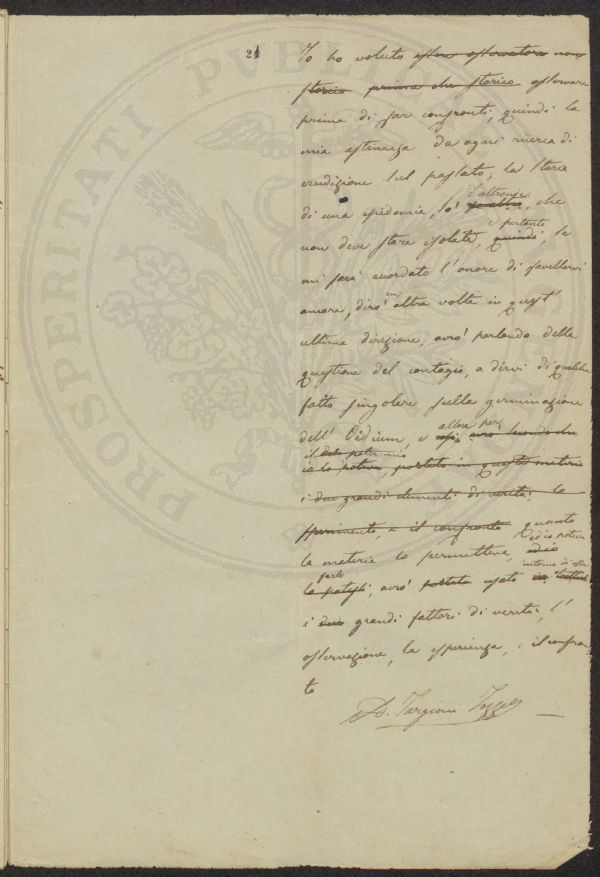 21
Io ho voluto essere osservatore non
storico prima che storico osservare
prima di far confronti, quindi la
mia astinenza da ogni ricerca di
erudizione sul passato; la storia
di una epidemia, so! d'altronde che
non deve stare isolata, quindi e pertanto, se
mi sarà accordato l'onore di favellarvi
ancora, dirò un altra volta in quest'
ultima direzione, avrò parlando della
questione del contagio, a dirvi di qualche
fatto singolare sulla germinazione
dell' Oidium, e allora per
il mio
io lo poteva, portato in questa materia
i due grandi elementi di verità, lo
sperimento, e il confronto quanto
la materia lo permetteva, ed io poteva
farlo, avrò portato usato intorno di esse
i due grandi fattori di verità, l'
osservazione, la esperienza, e il confron
to
A. Targioni Tozzetti
PROSPERITATI PVBLICAE